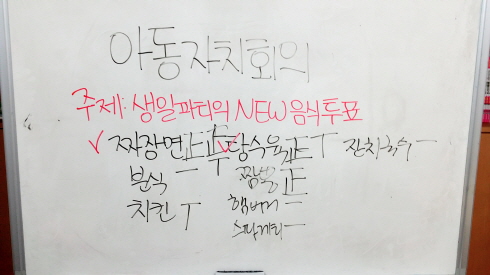 아동자치회의
주제: 생일파티의 NEW 음식투표
✓ 짜장면 正正 ✓ 탕수육 正 丅 잔치국수 一
분식 一 丅 짬뽕 正
치킨 丅 햄버거 一
스파게티 一